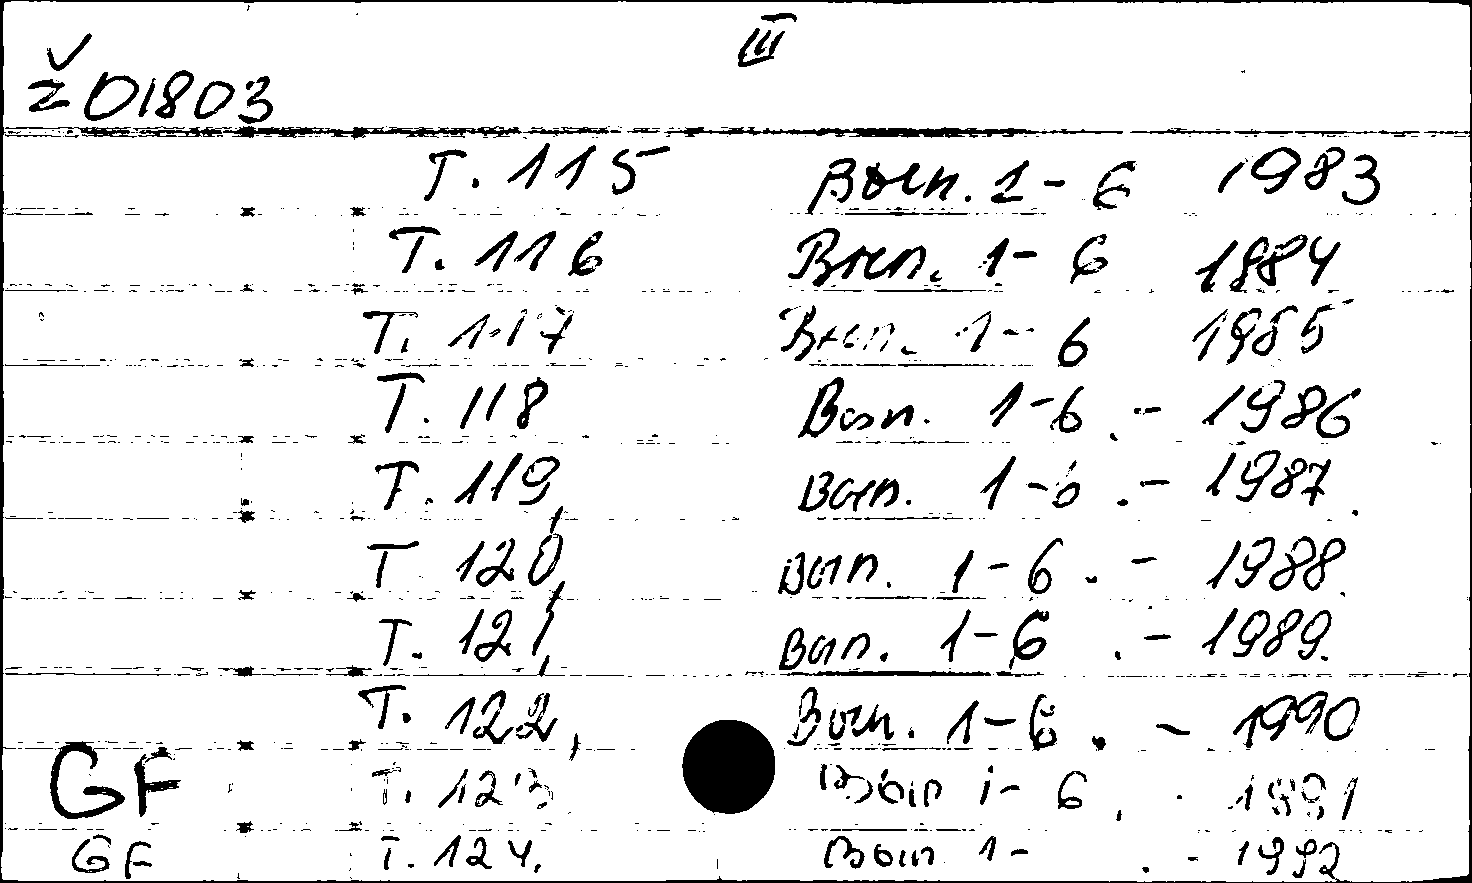 III
Ž01803
T. 115 Вып. 1-6 1983
T. 116 Вып. 1-6 1984
T. 117 Вып. 1-6 1985
T. 118 Вып. 1-6 .- 1986
T. 119, Вып. 1-6 .- 1987.
T 120, Вып. 1-6 .- 1988.
T. 121, Вып. 1-6 .- 1989.
T. 122, Вып. 1-6 . - 1990
GF T. 123 Вып 1-6 . - 1991
GF T. 124. Вып 1- . - 1992